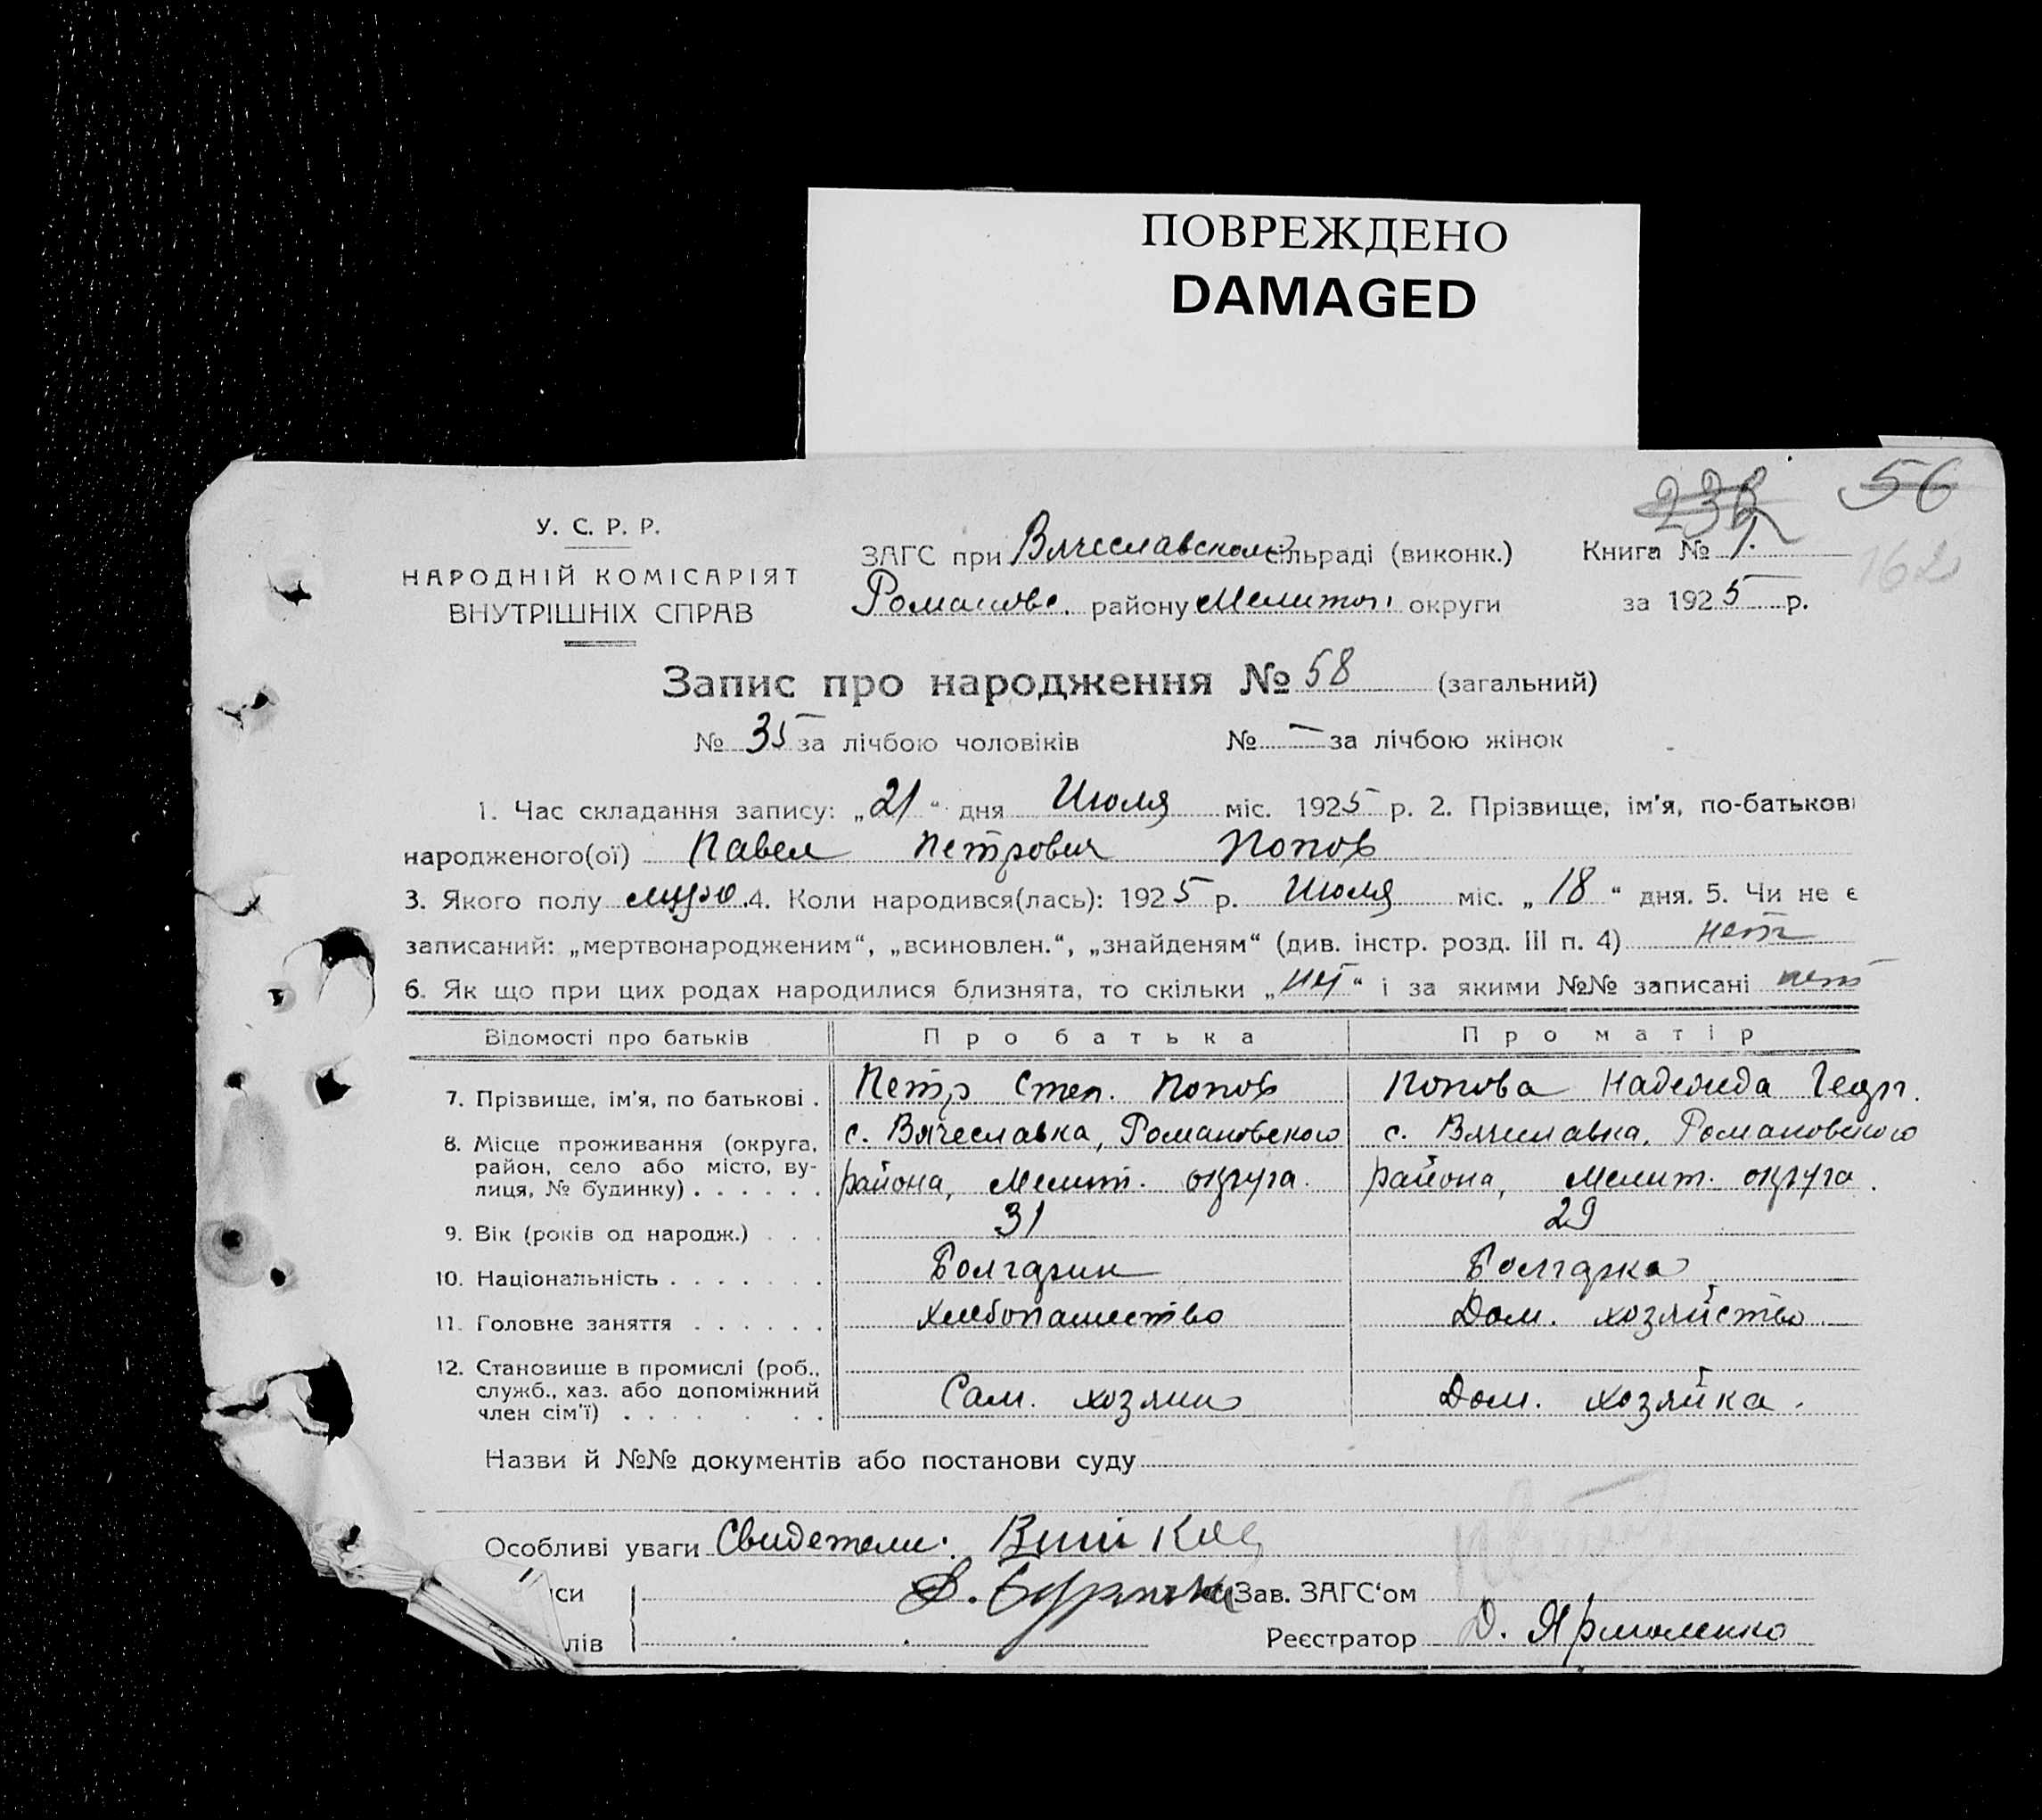 ПОВРЕЖДЕНО
DAMAGED
232 56
У. С. Р. Р.
НАРОДНІЙ КОМІСАРІЯТ
ВНУТРІШНІХ СПРАВ
ЗАГС при Вячеславском сільраді (виконк.)
Романовс. району Мелитоп. округи
Книга № 1.
162
за 1925 р.
Запис про народження № 58 (загальний)
№ 35 за лічбою чоловіків № — за лічбою жінок
1. Час складання запису: „21" дня Июля міс. 1925 р. 2. Прізвище, ім'я, по-батькові
народженого(ої) Павел Петрович Попов
3. Якого полу муж. 4. Коли народився(лась): 1925 р. Июля міс. „18" дня. 5. Чи не є
записаний: „мертвонародженим", „всиновлен.", „знайденям" (див. інстр. розд. III п. 4) нет
6. Як що при цих родах народилися близнята, то скільки „нет" і за якими №№ записані нет
Відомості про батьків Про батька Про матір
7. Прізвище, ім'я, по батькові . Петр Степ. Попов Попова Надежда Георг.
8. Місце проживання (округа, район, село або місто, вулиця, № будинку) . . . . . . с. Вячеславка, Романовского района, Мелит. округа. с. Вячеславка, Романовского района, Мелит. округа.
9. Вік (років од народж.) . . . 31 29
10. Національність . . . . . . . Болгарин Болгарка
11. Головне заняття . . . . . . Хлебопашество Дом. хозяйство
12. Становище в промислі (роб., служб., хаз. або допоміжний член сім'ї) . . . . . . . Сам. хозяин Дом. хозяйка.
Назви й №№ документів або постанови суду
Особливі уваги Свидетели:
си Зав. ЗАГС'ом
лів Реєстратор Д. Ярмоленко